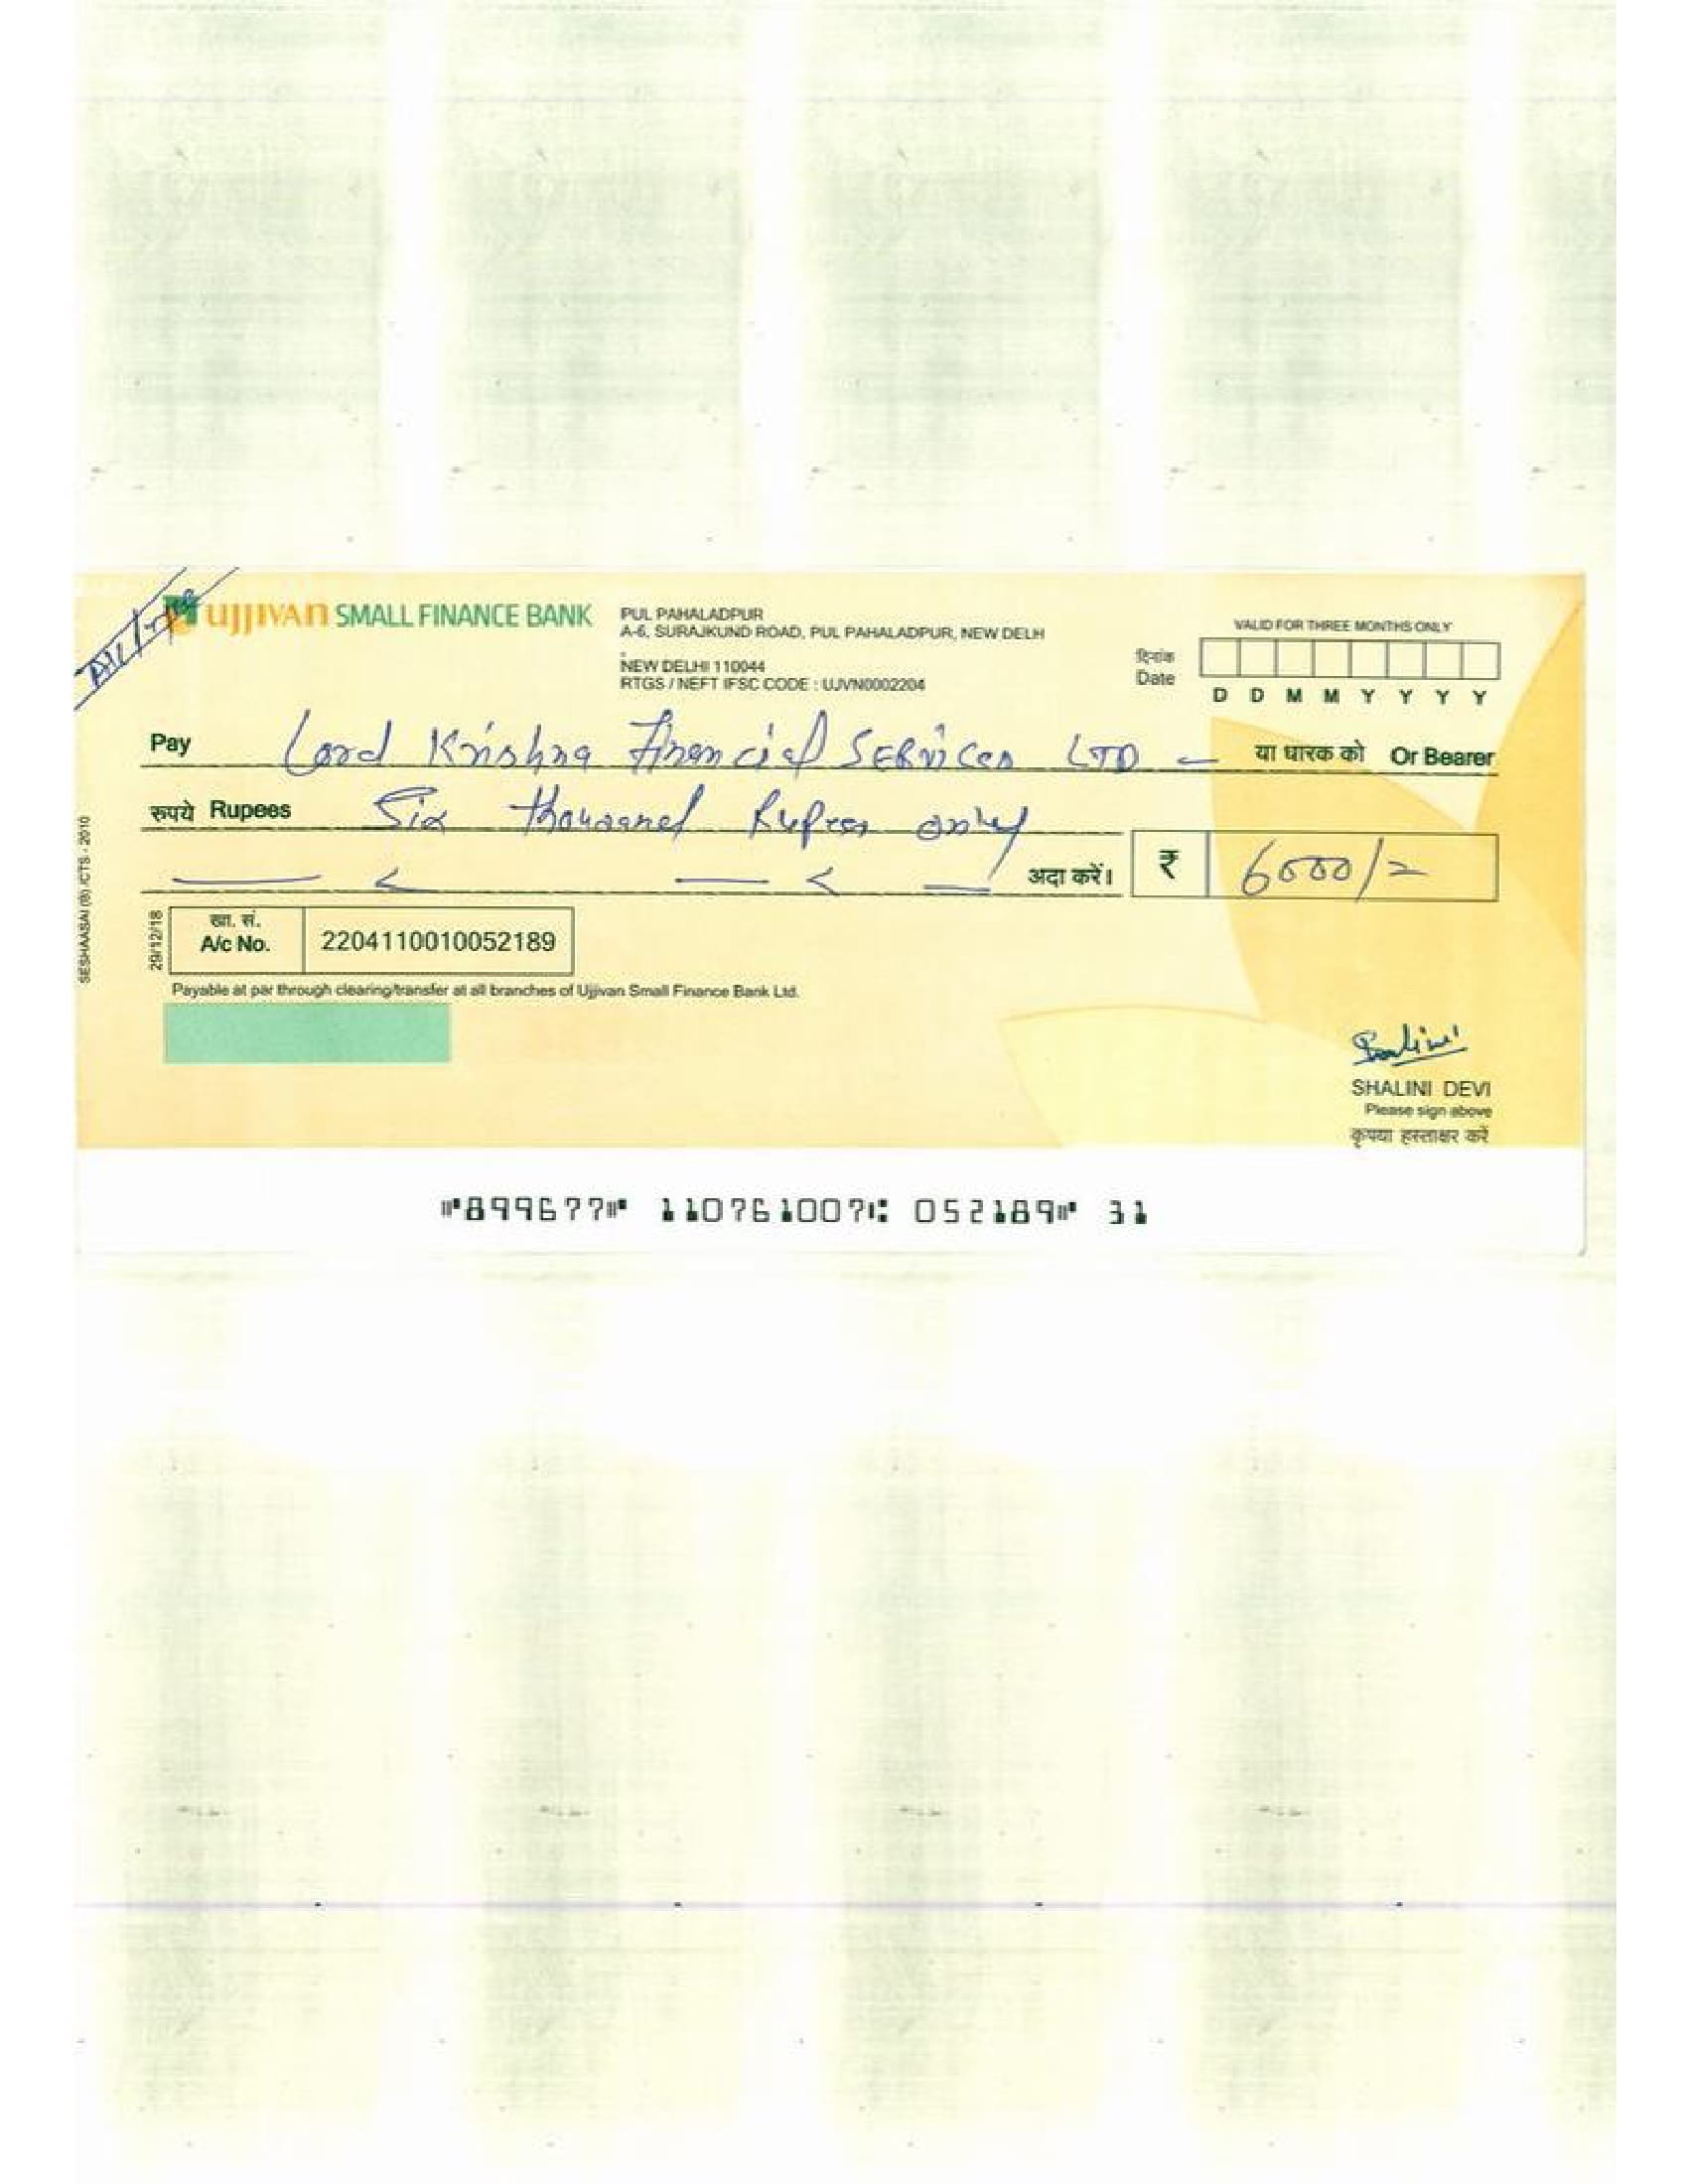 A/c Payee
ujjivan SMALL FINANCE BANK
PUL PAHALADPUR
A-6, SURAJKUND ROAD, PUL PAHALADPUR, NEW DELH
.
NEW DELHI 110044
RTGS / NEFT IFSC CODE : UJVN0002204
VALID FOR THREE MONTHS ONLY
दिनांक
Date
D D M M Y Y Y Y
Pay Lord Krishna Financial SERvices LTD या धारक को Or Bearer
रुपये Rupees Six thousand Rupees only
अदा करें। ₹ 6000/=
SESHAASAI (B) /CTS - 2010
29/12/18
खा. सं.
A/c No. 2204110010052189
Payable at par through clearing/transfer at all branches of Ujjivan Small Finance Bank Ltd.
Shalini
SHALINI DEVI
Please sign above
कृपया हस्ताक्षर करें
⑈899677⑈ 110761007⑆ 052189⑈ 31